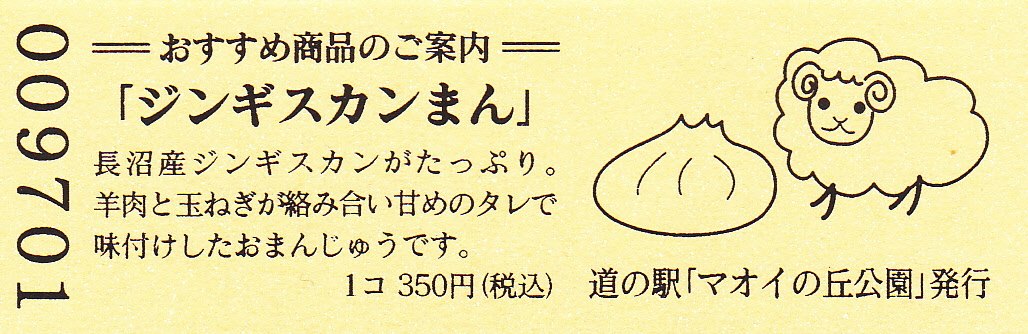 009701
おすすめ商品のご案内
「ジンギスカンまん」
長沼産ジンギスカンがたっぷり。
羊肉と玉ねぎが絡み合い甘めのタレで
味付けしたおまんじゅうです。
1コ 350円(税込)
道の駅「マオイの丘公園」発行